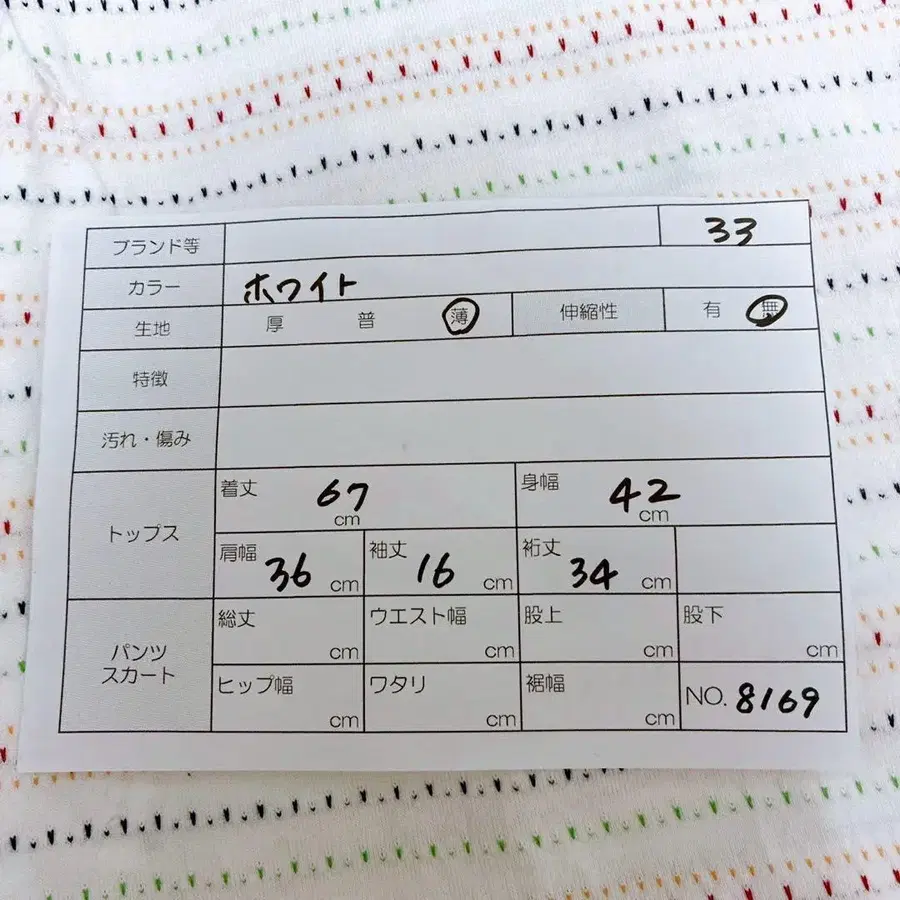 ブランド等 33
カラー ホワイト
生地 厚 普 薄 伸縮性 有 無
特徴
汚れ・傷み
トップス
着丈 67 cm 身幅 42 cm
肩幅 36 cm 袖丈 16 cm 裄丈 34 cm
パンツ
スカート
総丈 cm ウエスト幅 cm 股上 cm 股下 cm
ヒップ幅 cm ワタリ cm 裾幅 cm NO. 8169